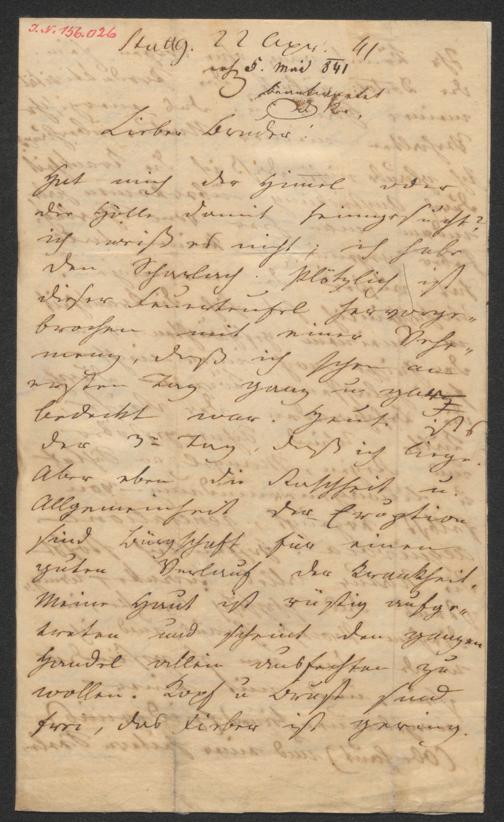 J. N. 156.026
Stuttg. 22 Apr. 41
5. Mai 841
beantwortet
Lieber Bruder!
Hat mich der Himmel oder
die Hölle damit heimgesucht?
ich weiß es nicht; ich habe
den Scharlach. Plötzlich ist
dieser Feuerteufel hervorge-
brochen mit einer Vehe-
menz, daß ich schon am
ersten Tag ganz u gar
bedeckt war. Heut ists
der 3te Tag, daß ich liege.
Aber eben die Raschheit u.
Allgemeinheit der Eruption
sind Bürgschaft für einen
guten Verlauf der Krankheit.
Meine Haut ist rüstig aufge-
treten und scheint den ganzen
Handel allein ausfechten zu
wollen. Kopf u Brust sind
frei, das Fieber ist gering.